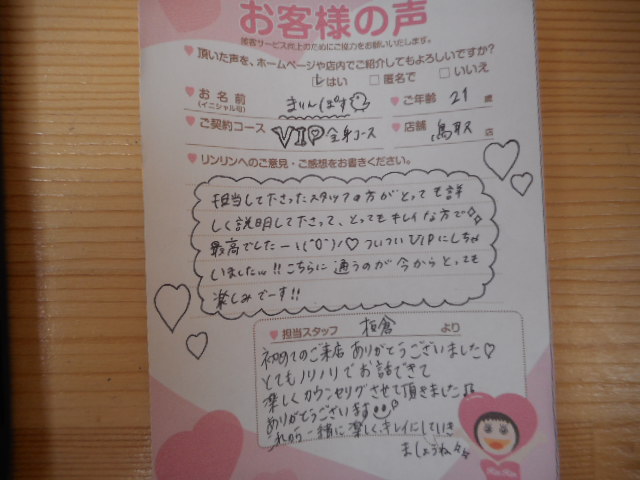 お客様の声
接客サービス向上のためにご協力をお願いいたします。
頂いた声を、ホームページや店内でご紹介してもよろしいですか?
はい 匿名で いいえ
お名前 きりんぱす ご年齢 21 歳
(イニシャル可)
ご契約コース VIP 全身コース 店舗 鳥取 店
リンリンへのご意見・ご感想をお書きください。
担当して下さったスタッフの方がとっても詳
しく説明して下さって、とってもキレイな方で
最高でしたーヽ(^o^)ノ♡ついついVIPにしちゃ
いましたw!!こちらに通うのが今からとっても
楽しみでーす!!
担当スタッフ 板倉 より
初めてのご来店ありがとうございました♡
とてもノリノリでお話できて
楽しくカウンセリングさせて頂きました♫
ありがとうございます
これから一緒に楽しく、キレイにしていき
ましょうね